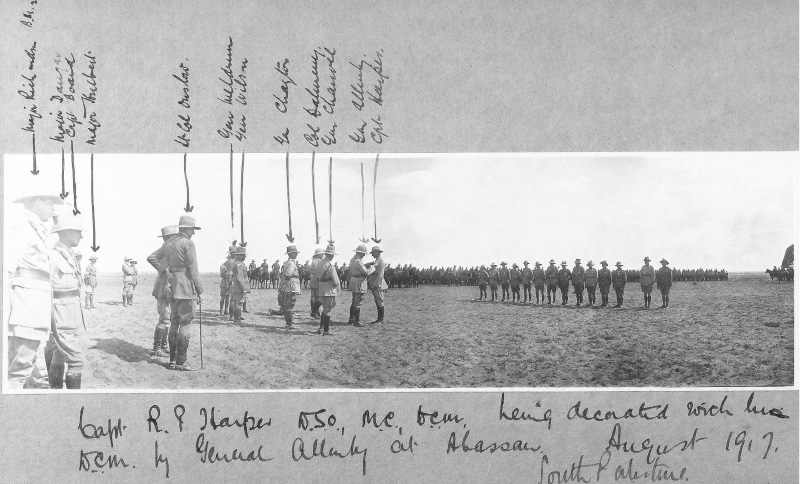 Major Richardson
Major
Capt Board
Major Hulbert
Lt Col Onslow.
Gen Meldrum
Gen Wilson
Gen Chaytor
Col Dalmeny.
Gen Chauvel
Gen Allenby.
Cpt Harper.
Capt. R. P Harper D.S.O., M.C., D.C.M. being decorated with his
D.C.M. by General Allenby at Abassan. August 1917.
South Palestine.